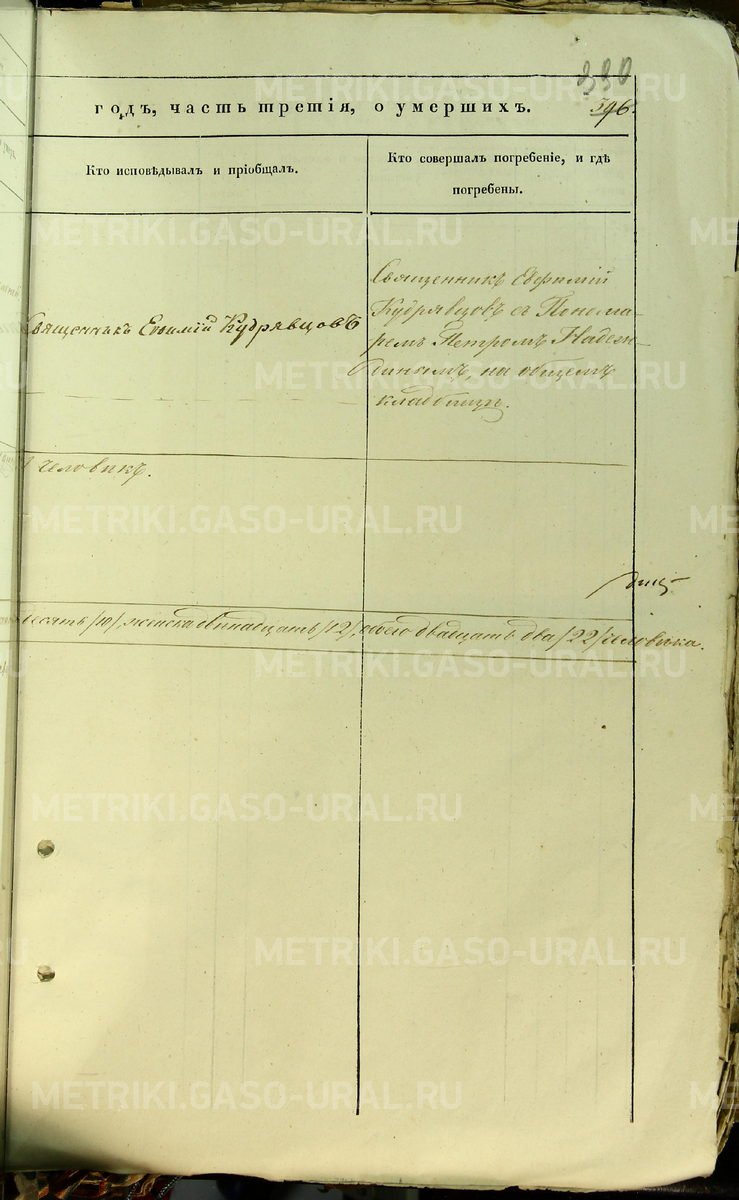 330
годъ, часть третія, о умершихъ.
596.
Кто исповѣдывалъ и пріобщалъ.
Кто совершалъ погребеніе, и гдѣ
погребены.
Священникъ Евѳимій Кудрявцовъ
Священникъ Евфимій
Кудрявцовъ съ Понома-
ремъ Петромъ Надеж-
динымъ, на общемъ
кладбищѣ.
человѣкъ.
десять /10/, женска двенадцать /12/, обоего двадцать два /22/ человѣка.
METRIKI.GASO-URAL.RU